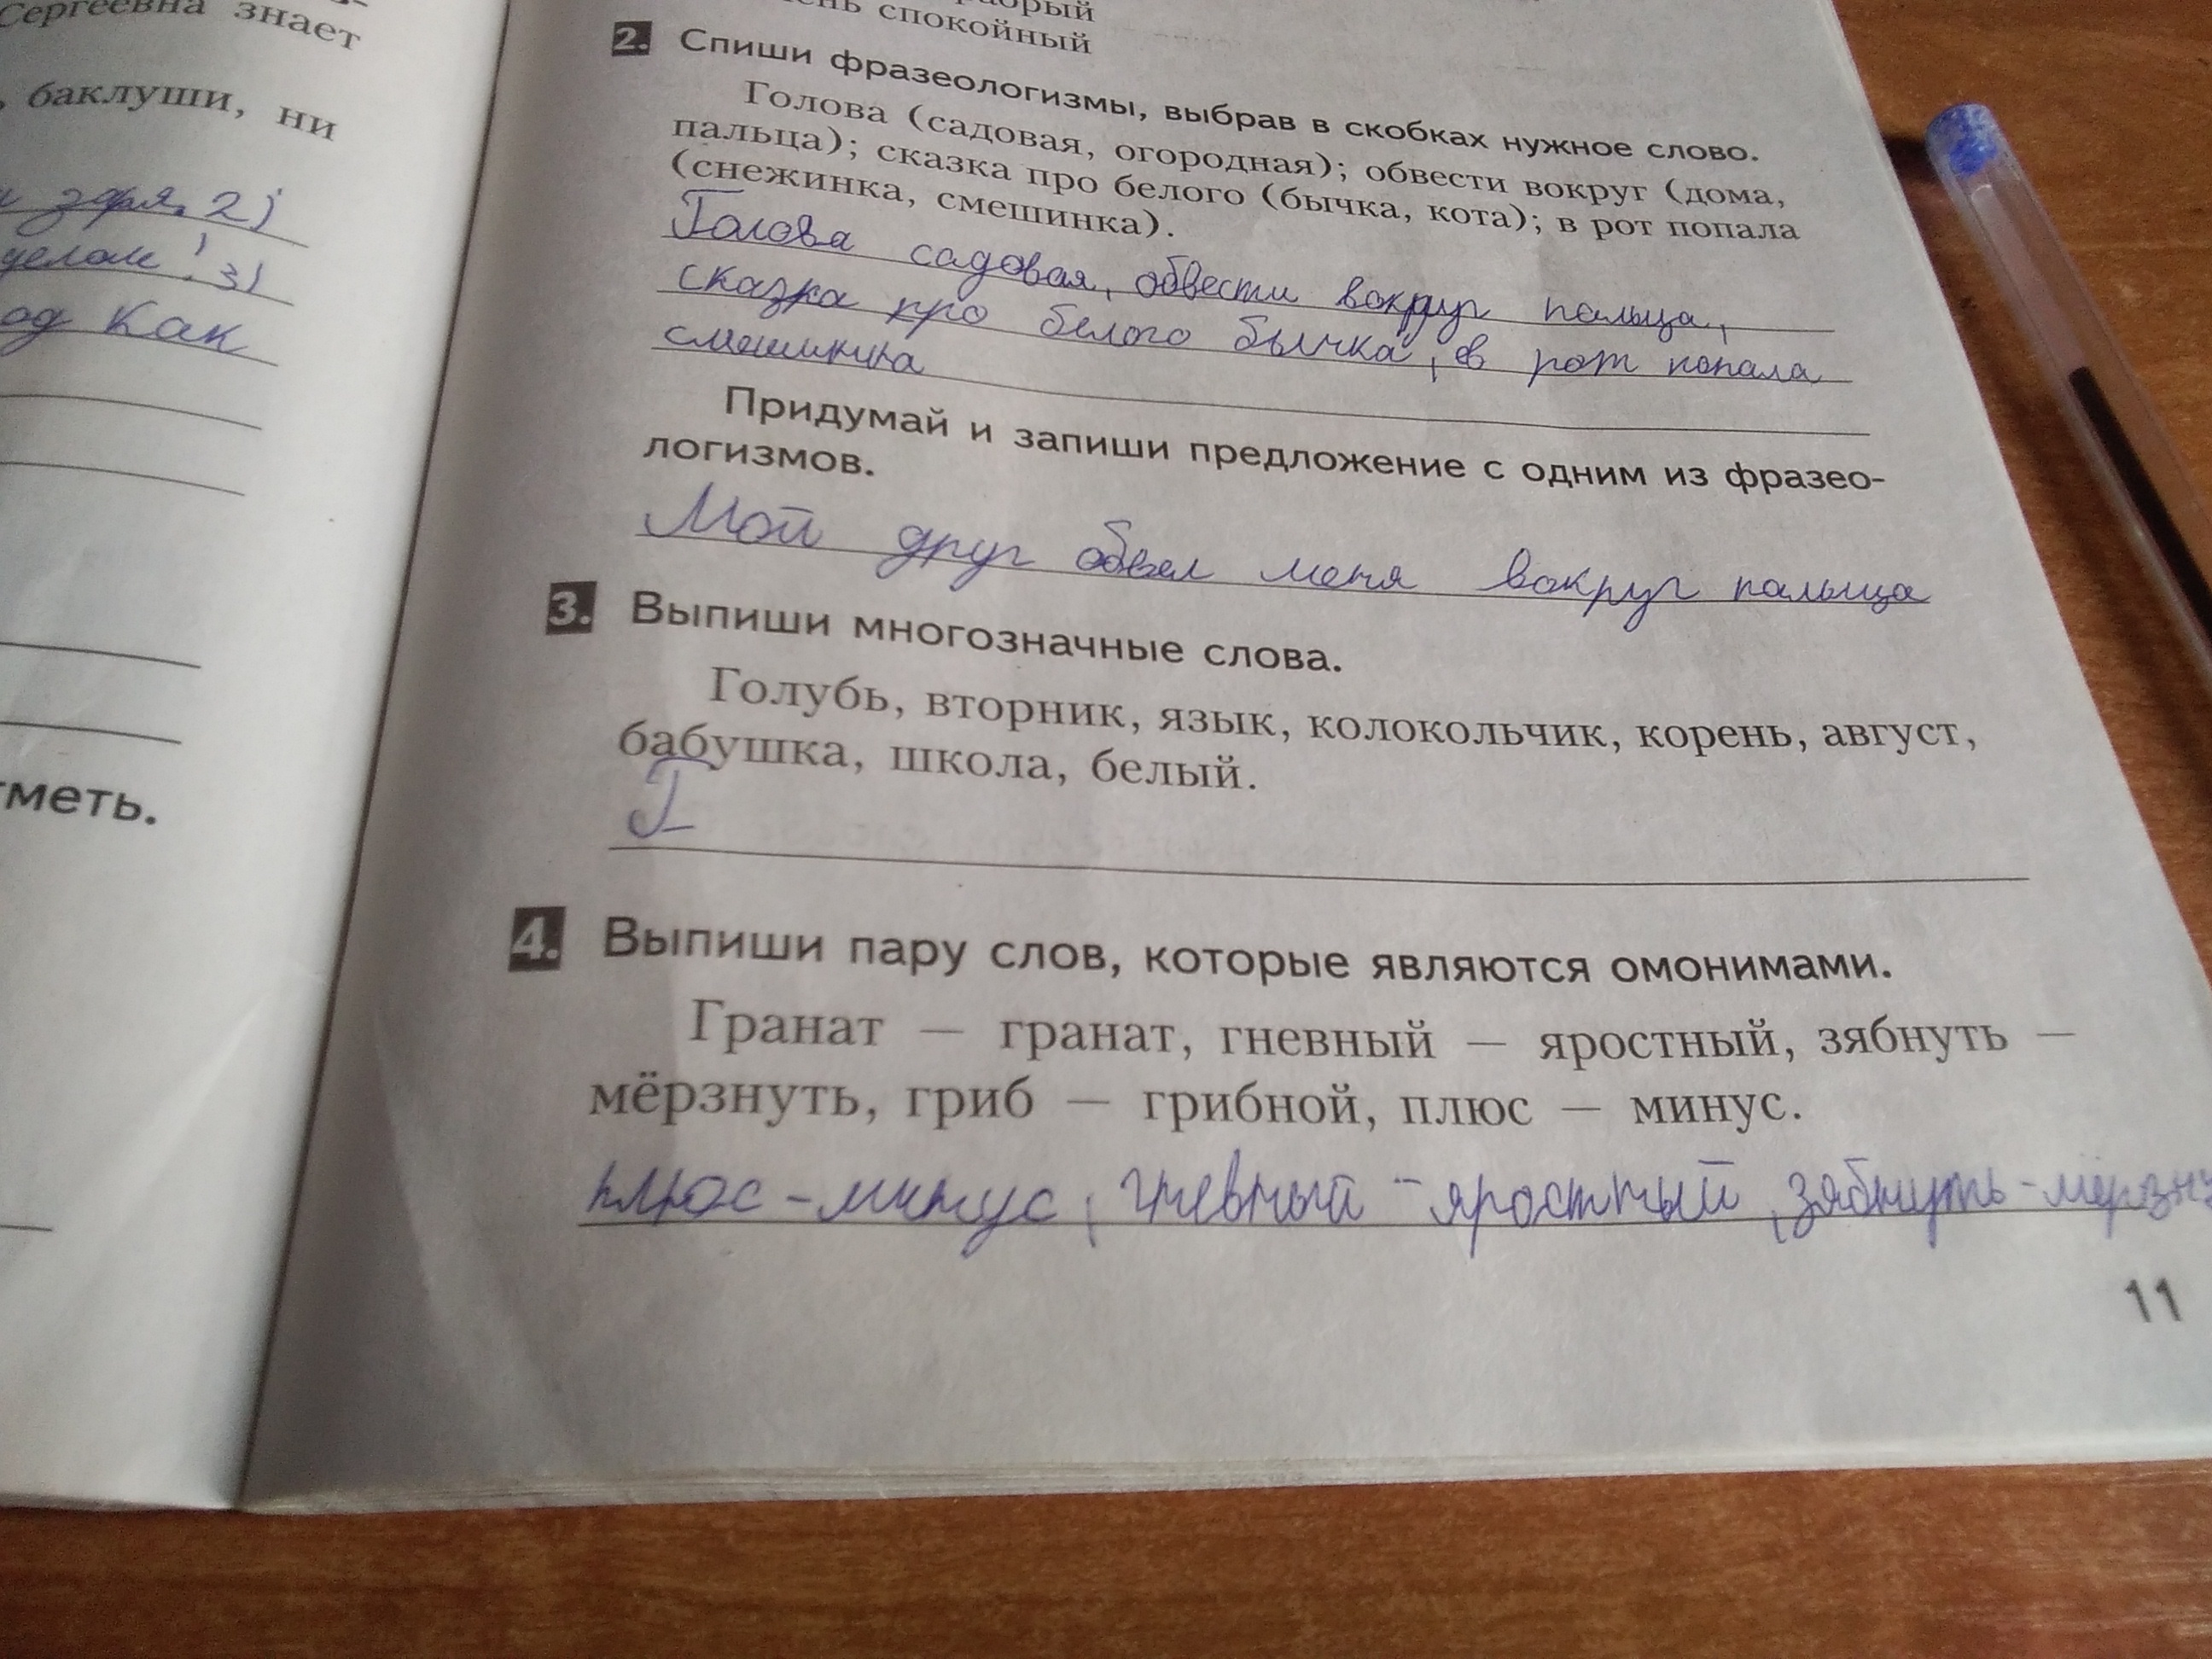 Сергеевна знает
баклуши, ни
заря. 2)
делом! 3)
Как
тметь.
спокойный
2. Спиши фразеологизмы, выбрав в скобках нужное слово.
Голова (садовая, огородная); обвести вокруг (дома,
пальца); сказка про белого (бычка, кота); в рот попала
(снежинка, смешинка).
Голова садовая, обвести вокруг пальца,
сказка про белого бычка, в рот попала
смешинка
Придумай и запиши предложение с одним из фразео-
логизмов.
Мой друг обвел меня вокруг пальца
3. Выпиши многозначные слова.
Голубь, вторник, язык, колокольчик, корень, август,
бабушка, школа, белый.
Г
4. Выпиши пару слов, которые являются омонимами.
Гранат — гранат, гневный — яростный, зябнуть —
мёрзнуть, гриб — грибной, плюс — минус.
плюс - минус, гневный - яростный, зябнуть - мёрзну
11